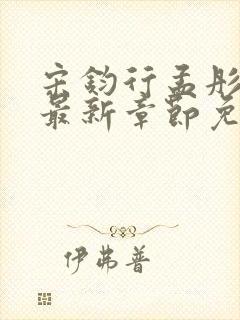 宋钧行孟彤
最新章节免
伊弗普